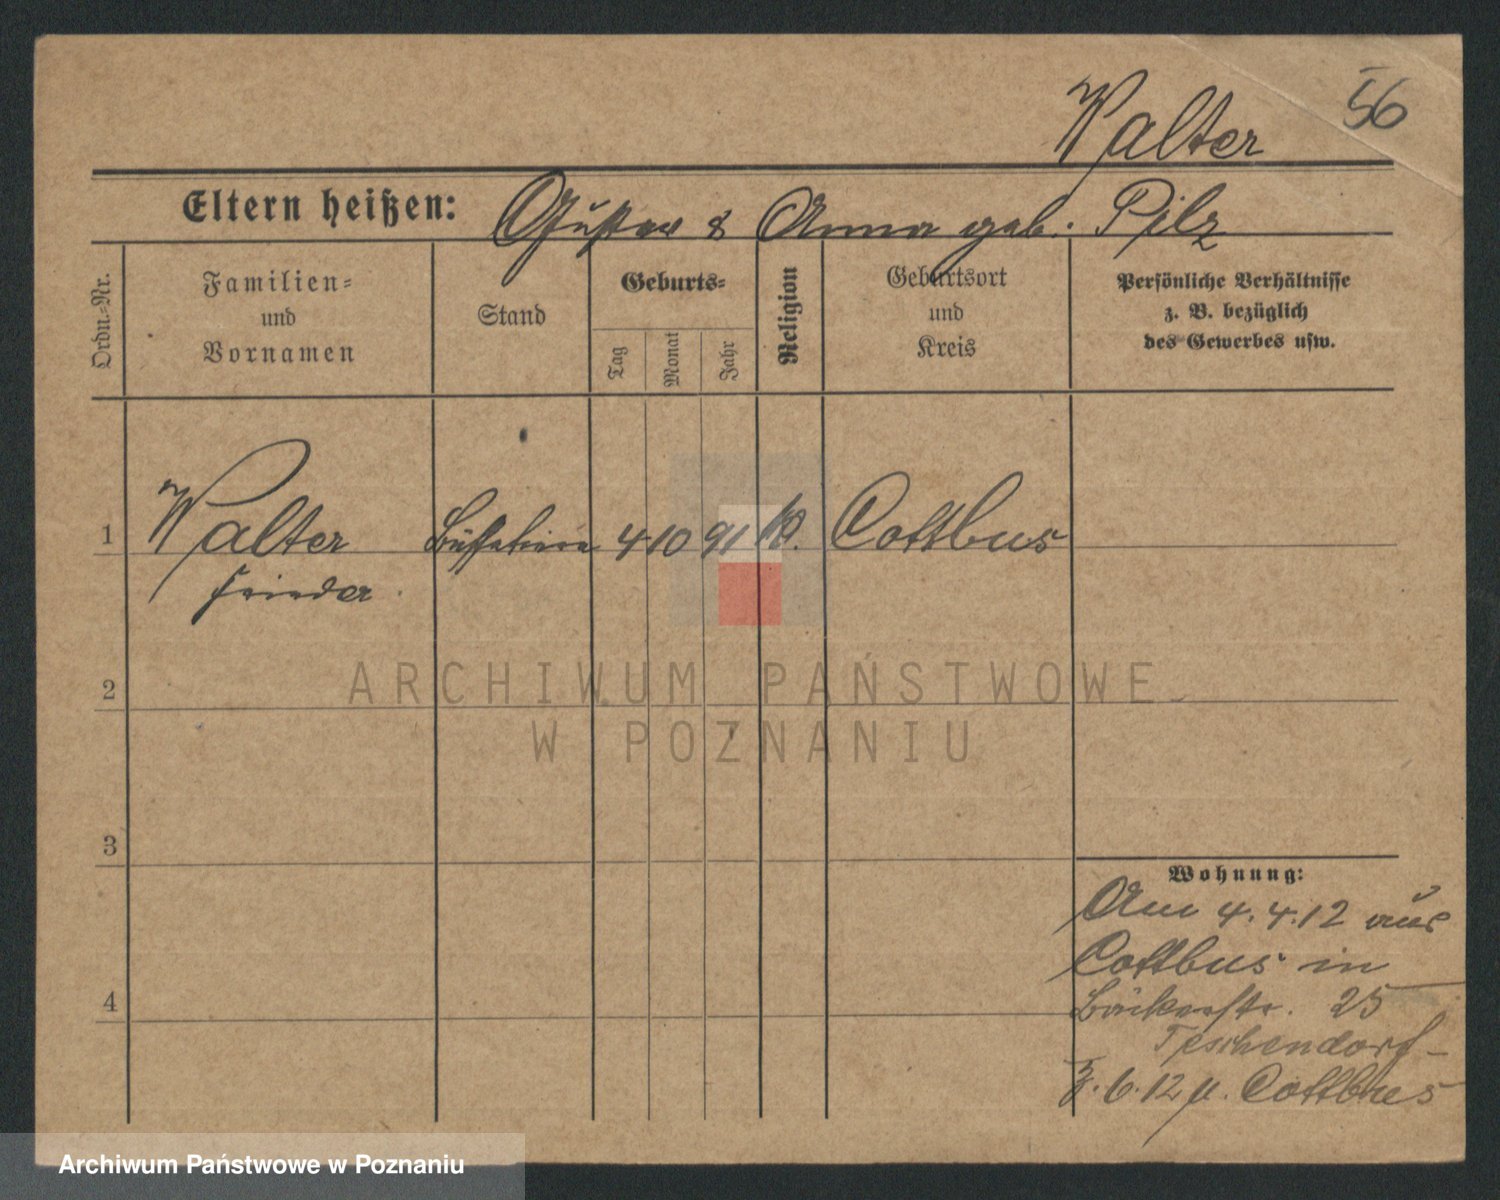 56
Walter
Eltern heißen: Gustav & Anna geb. Pilz
Ordn.-Nr.
Familien-
und
Vornamen
Stand
Geburts-
Tag
Monat
Jahr
Religion
Geburtsort
und
Kreis
Persönliche Verhältnisse
z. B. bezüglich
des Gewerbes usw.
1 Walter 4 10 91 Cottbus
2
3
4
Wohnung:
Am 4.4.12 aus
Cottbus in
Bäckerstr. 25
Teschendorf
6.12 Cottbus
ARCHIWUM PAŃSTWOWE
W POZNANIU
Archiwum Państwowe w Poznaniu